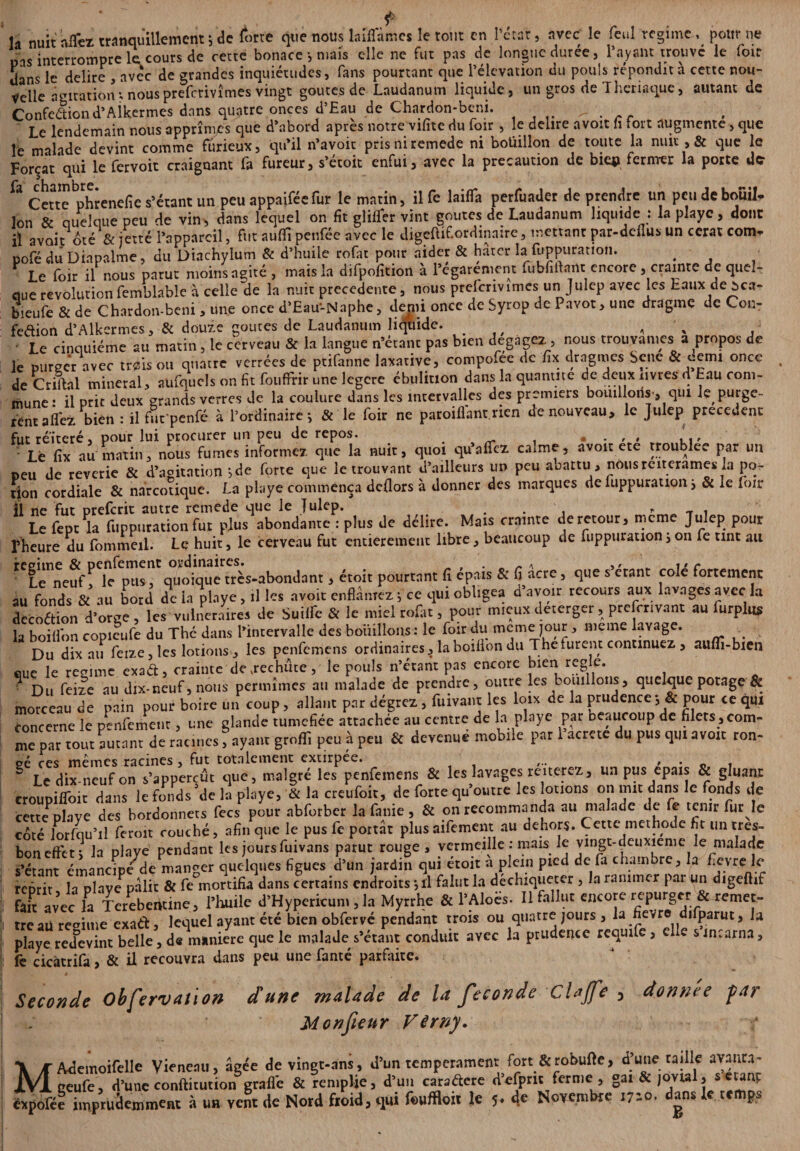 la nuit assez tranquillement; de sorte que nous laissâmes le tout en l'état, avec le seul regime, pour ne
pas interrompre le cours de cette bonace; mais elle ne fut pas de longue durée, l'ayant trouvé le soir
dans le delire, avec de grandes inquiétudes, sans pourtant que l'élevation du pouls répondit à cette nou-
velle agitation; nous prescrivîmes vingt goutes de Laudanum liquide, un gros de Theriaque, autant de
Confection d'Alkermes dans quatre onces d'Eau de Chardon-beni.
Le lendemain nous apprîmes que d'abord après notre visite du soir, le delire avoit si fort augmenté, que
le malade devint comme furieux, qu'il n'avoit pris ni remede ni boüillon de toute la nuit, & que le
Forçat qui le servoit craignant sa fureur, s'étoit enfui, avec la precaution de bien fermer la porte de
sa chambre.
Cette phrenesie s'étant un peu appaisée sur le matin, il se laissa persuader de prendre un peu de boüil-
lon & quelque peu de vin, dans lequel on fit glisser vint goutes de Laudanum liquide : la playe, dont
il avoit ôté & jetté l'appareil, fut aussi pensée avec le digestif ordinaire, mettant par-dessus un cerat com-
posé du Diapalme, du Diachylum & d'huile rosat pour aider & hâter la suppuration.
Le soir il nous parut moins agité, mais la disposition à l'égarément subsistant encore, crainte de quel-
que revolution semblable à celle de la nuit precedente, nous prescrivimes un Julep avec les Eaux de Sca-
bieuse & de Chardon-beni, une once d'Eau-Naphe, demi once de Syrop de Pavot, une dragme de Con-
fection d'Alkermes, & douze goutes de Laudanum liquide.
Le cinquiéme au matin, le cerveau & la langue n'étant pas bien dégagez, nous trouvâmes à propos de
le purger avec trois ou quatre verrées de ptisanne laxative, composée de six dragmes Sené & demi once
de Cristal mineral, ausquels on fit souffrir une legere ébulition dans la quantité de deux livres d'Eau com-
mune : il prit deux grands verres de la coulure dans les intervalles des premiers boüillons, qui le purge-
rent assez bien : il fut pensé à l'ordinaire; & le soir ne paroissant rien de nouveau, le Julep precedent
fut réïteré, pour lui procurer un peu de repos.
Le six au matin, nous fumes informez que la nuit, quoi qu'assez calme, avoit été troublée par un
peu de reverie & d'agitation; de sorte que le trouvant d'ailleurs un peu abattu, nous réïterâmes la po-
tion cordiale & narcotique. La playe commença deslors à donner des marques de suppuration; & le soir
il ne fut prescrit autre remede que le Julep.
Le sept la suppuration fut plus abondante : plus de délire. Mais crainte de retour, même Julep pour
l'heure du sommeil. Le huit, le cerveau fut entierement libre, beaucoup de suppuration; on se tint au
regime & pensement ordinaires.
Le neuf, le pus, quoique très-abondant, étoit pourtant si épais & si âcre, que s'étant colé fortement
au fonds & au bord de la playe, il les avoit enflâmez; ce qui obligea d'avoir recours aux lavages avec la
decoction d'orge, les vulneraires de Suisse & le miel rosat, pour mieux déterger, prescrivant au surplus
la boisson copieuse du Thé dans l'intervalle des boüillons : le soir du même jour, même lavage.
Du dix au seize, les lotions, les pensemens ordinaires, la boisson du Thé furent continuez, aussi-bien
que le regime exact, crainte de rechûte, le pouls n'étant pas encore bien reglé.
Du seize au dix-neuf, nous permîmes au malade de prendre, outre les boüillons, quelque potage &
morceau de pain pour boire un coup, allant par dégrez, suivant les loix de la prudence; & pour ce qui
concerne le pensement, une glande tumefiée attachée au centre de la playe par beaucoup de filets, com-
me par tout autant de racines, ayant grossi peu à peu & devenuë mobile par l'acreté du pus qui avoit ron-
gé ces mêmes racines, fut totalement extirpée.
Le dix-neuf on s'apperçût que, malgré les pensemens & les lavages réiterez, un pus épais & gluant
croupissoit dans le fonds de la playe, & la creusoit, de sorte qu'outre les lotions on mit dans le fonds de
cette playe des bordonnets secs pour absorber la sanie, & on recommanda au malade de se tenir sur le
côté lorsqu'il seroit couché, afin que le pus se portât plus aisement au dehors. Cette methode fit un très-
bon effet; la playe pendant les jours suivans parut rouge, vermeille : mais le vingt-deuxiéme le malade
s'étant émancipé de manger quelques figues d'un jardin qui étoit à plein pied de sa chambre, la fievre le
reprit, la playe pâlit & se mortifia dans certains endroits; il falut la déchiqueter, la ranimer par un digestif
fait avec la Terebentine, l'huile d'Hypericum, la Myrrhe & l'Aloës. Il fallut encore repurger & remet-
tre au regime exact, lequel ayant été bien observé pendant trois ou quatre jours, la fievre disparut, la
playe redevint belle, de maniere que le malade s'étant conduit avec la prudence requise, elle s'incarna,
se cicàtrisa, & il recouvra dans peu une santé parfaite.
Seconde Observation d'une malade de la seconde Classe, donnée par
Monsieur Vérny.
MAdemoiselle Vieneau, âgée de vingt-ans, d'un temperament fort & robuste, d'une taille avanta-
geuse, d'une constitution grasse & remplie, d'un caractere d'esprit ferme, gai & jovial, s'étant
éxposée imprudemment à un vent de Nord froid, qui souffloit le 5. de Novembre 1720. dans le temps
B